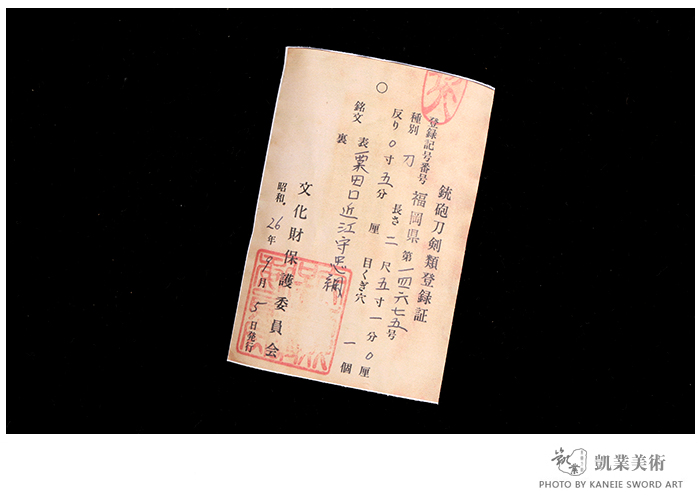 銃砲刀剣類登録証
登録記号番号 福岡県 第一四六七五号
種別 刀 長さ 二尺五寸一分0厘
反り 0寸五分 厘 目くぎ穴 一個
銘文 表 粟田口近江守忠綱
裏
文化財保護委員会
昭和 26年9月5日発行
凱業美術
PHOTO BY KANEIE SWORD ART